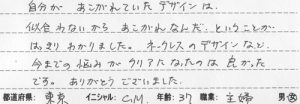 自分が あこがれていたデザインは、
似合わないから あこがれなんだ、ということが
はっきりわかりました。ネックレスのデザインなど、
今までの悩みがクリアになったのは 良かった
です。ありがとうございました。
都道府県: 東京 イニシャル: C.M. 年齢: 37 職業: 主婦 男・女